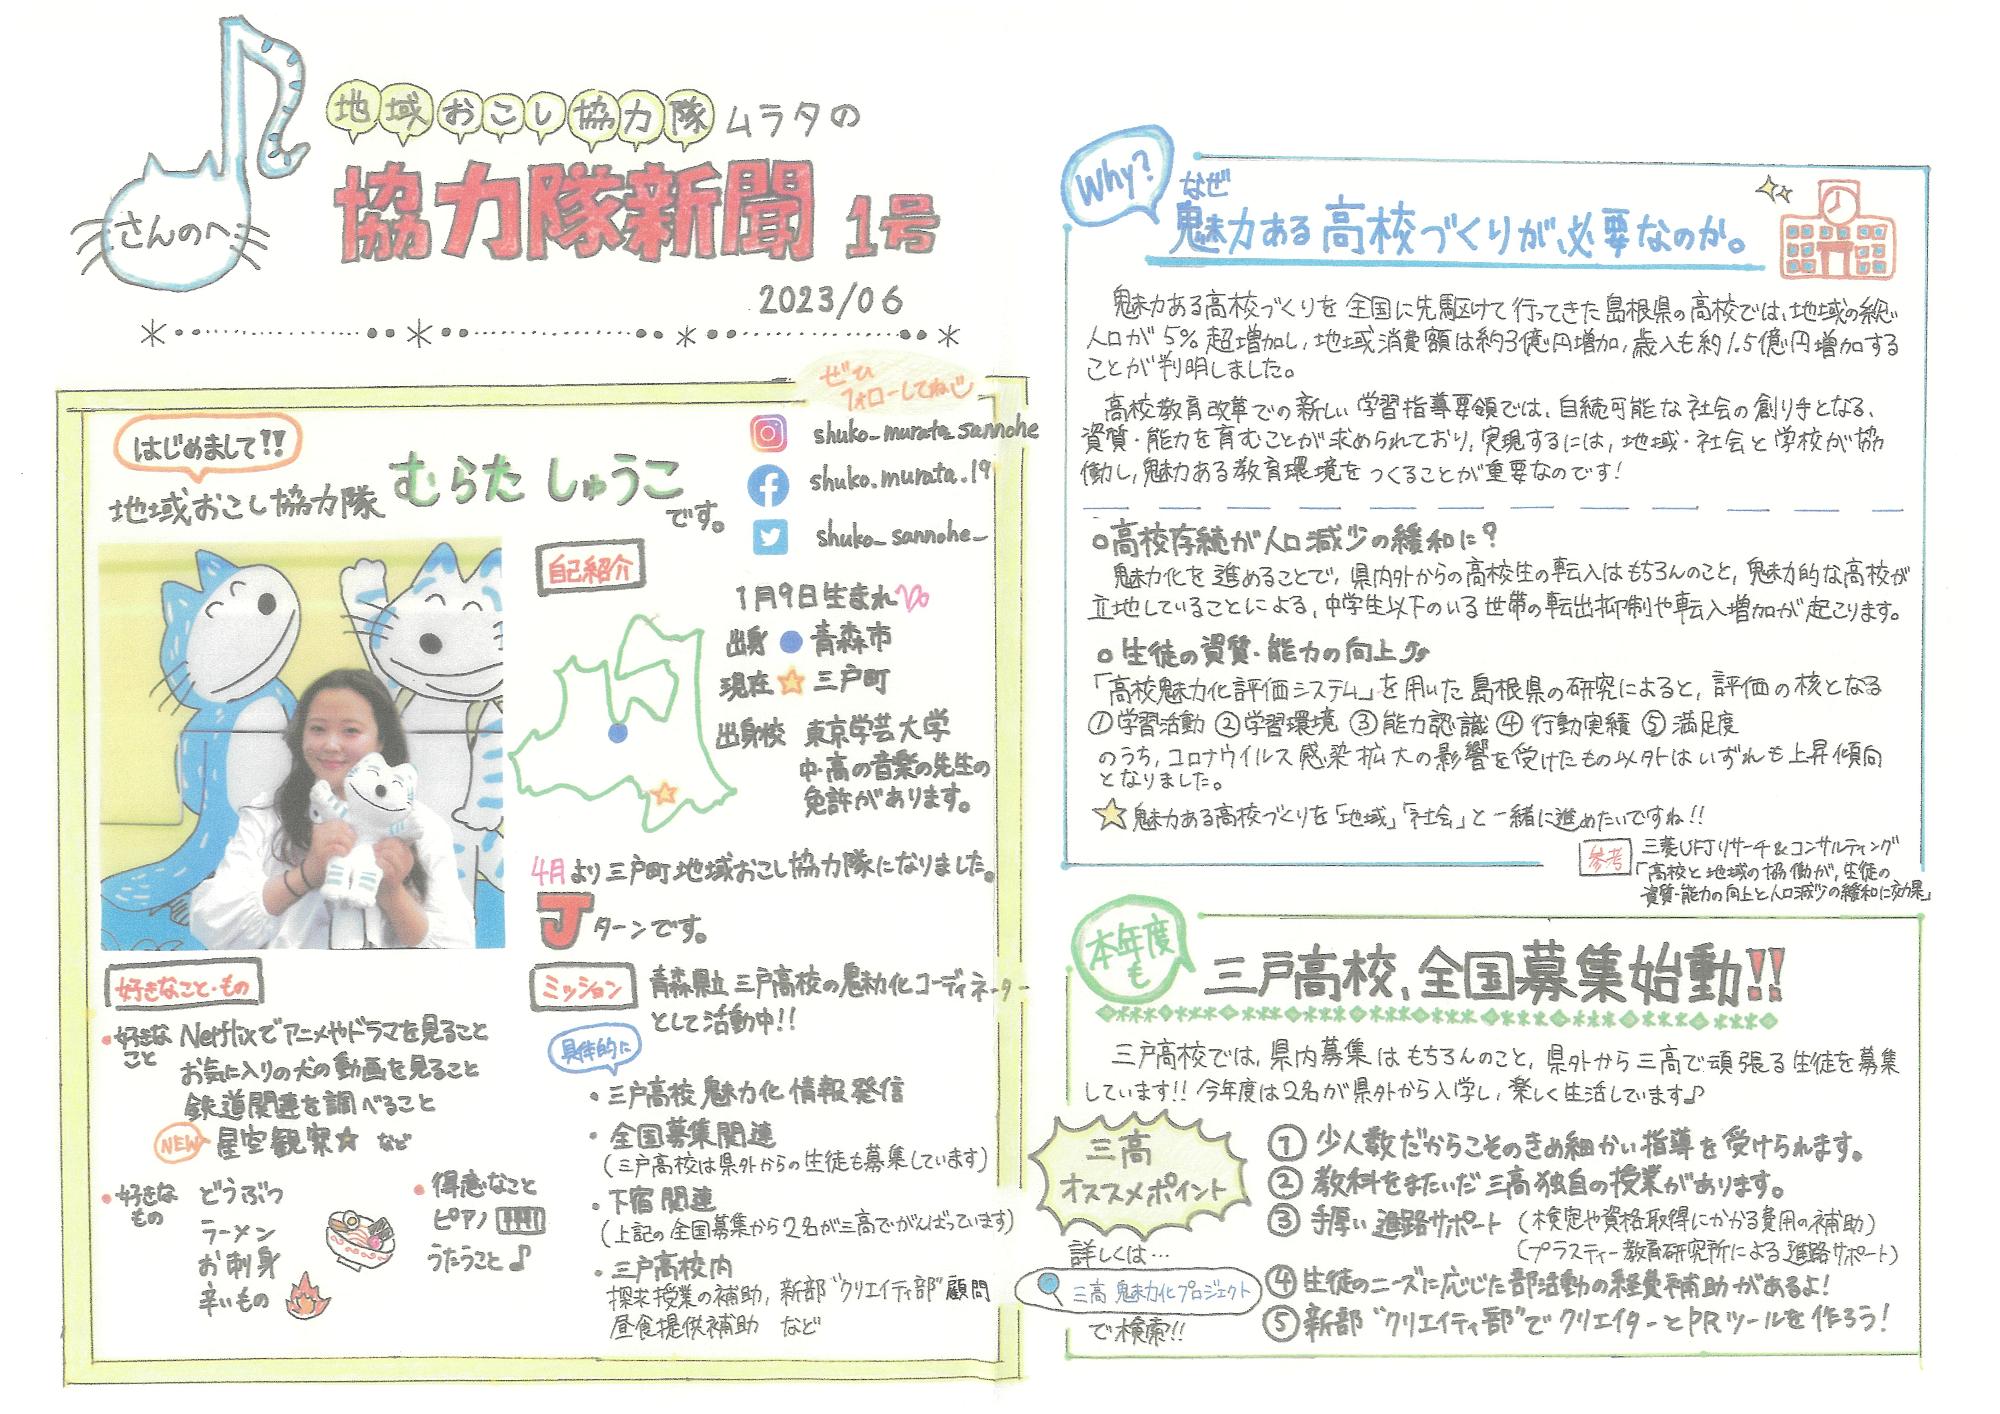 さんのへ
地域おこし協力隊 ムラタの
協力隊新聞 1号
2023/06
ぜひ
フォローしてね
はじめまして!!
地域おこし協力隊 むらた しゅうこ
です。
shuko_murata_sannohe
shuko.murata.19
shuko_sannohe_
自己紹介
1月9日生まれ
出身 青森市
現在 三戸町
出身校 東京学芸大学
中・高の音楽の先生の
免許があります。
4月より三戸町地域おこし協力隊になりました。
Jターンです。
好きなこと・もの
・好きな
こと
Netflixでアニメやドラマを見ること
お気に入りの犬の動画を見ること
鉄道関連を調べること
NEW 星空観察☆ など
・好きな
もの
どうぶつ
ラーメン
お刺身
辛いもの
・得意なこと
ピアノ
うたうこと♪
ミッション
青森県立三戸高校の魅力化コーディネーター
として活動中!!
具体的に
・三戸高校魅力化情報発信
・全国募集関連
(三戸高校は県外からの生徒も募集しています)
・下宿関連
(上記の全国募集から2名が三高でがんばっています)
・三戸高校内
探求授業の補助,新部"クリエイティ部"顧問
昼食提供補助 など
Why?
なぜ
魅力ある高校づくりが必要なのか。
魅力ある高校づくりを全国に先駆けて行ってきた島根県の高校では、地域の総
人口が5%超増加し,地域消費額は約3億円増加,歳入も約1.5億円増加する
ことが判明しました。
高校教育改革での新しい学習指導要領では、自続可能な社会の創り手となる、
資質・能力を育むことが求められており,実現するには,地域・社会と学校が協
働し,魅力ある教育環境をつくることが重要なのです!
○高校存続が人口減少の緩和に?
魅力化を進めることで,県内外からの高校生の転入はもちろんのこと,魅力的な高校が
立地していることによる,中学生以下のいる世帯の転出抑制や転入増加が起こります。
○生徒の資質・能力の向上
「高校魅力化評価システム」を用いた島根県の研究によると,評価の核となる
①学習活動 ②学習環境 ③能力認識 ④行動実績 ⑤満足度
のうち,コロナウイルス感染拡大の影響を受けたもの以外はいずれも上昇傾向
となりました。
☆魅力ある高校づくりを「地域」「社会」と一緒に進めたいですね!!
参考
三菱UFJリサーチ&コンサルティング
「高校と地域の協働が,生徒の
資質・能力の向上と人口減少の緩和に効果」
本年度
も
三戸高校,全国募集始動!!
三戸高校では,県内募集はもちろんのこと,県外から三高で頑張る生徒を募集
しています!!今年度は2名が県外から入学し,楽しく生活しています♪
三高
オススメポイント
①少人数だからこそのきめ細かい指導を受けられます。
②教科をまたいだ三高独自の授業があります。
③手厚い進路サポート (検定や資格取得にかかる費用の補助)
(プラスティー教育研究所による進路サポート)
④生徒のニーズに応じた部活動の経費補助があるよ!
⑤新部"クリエイティ部"でクリエイターとPRツールを作ろう!
詳しくは…
三高 魅力化プロジェクト
で検索!!